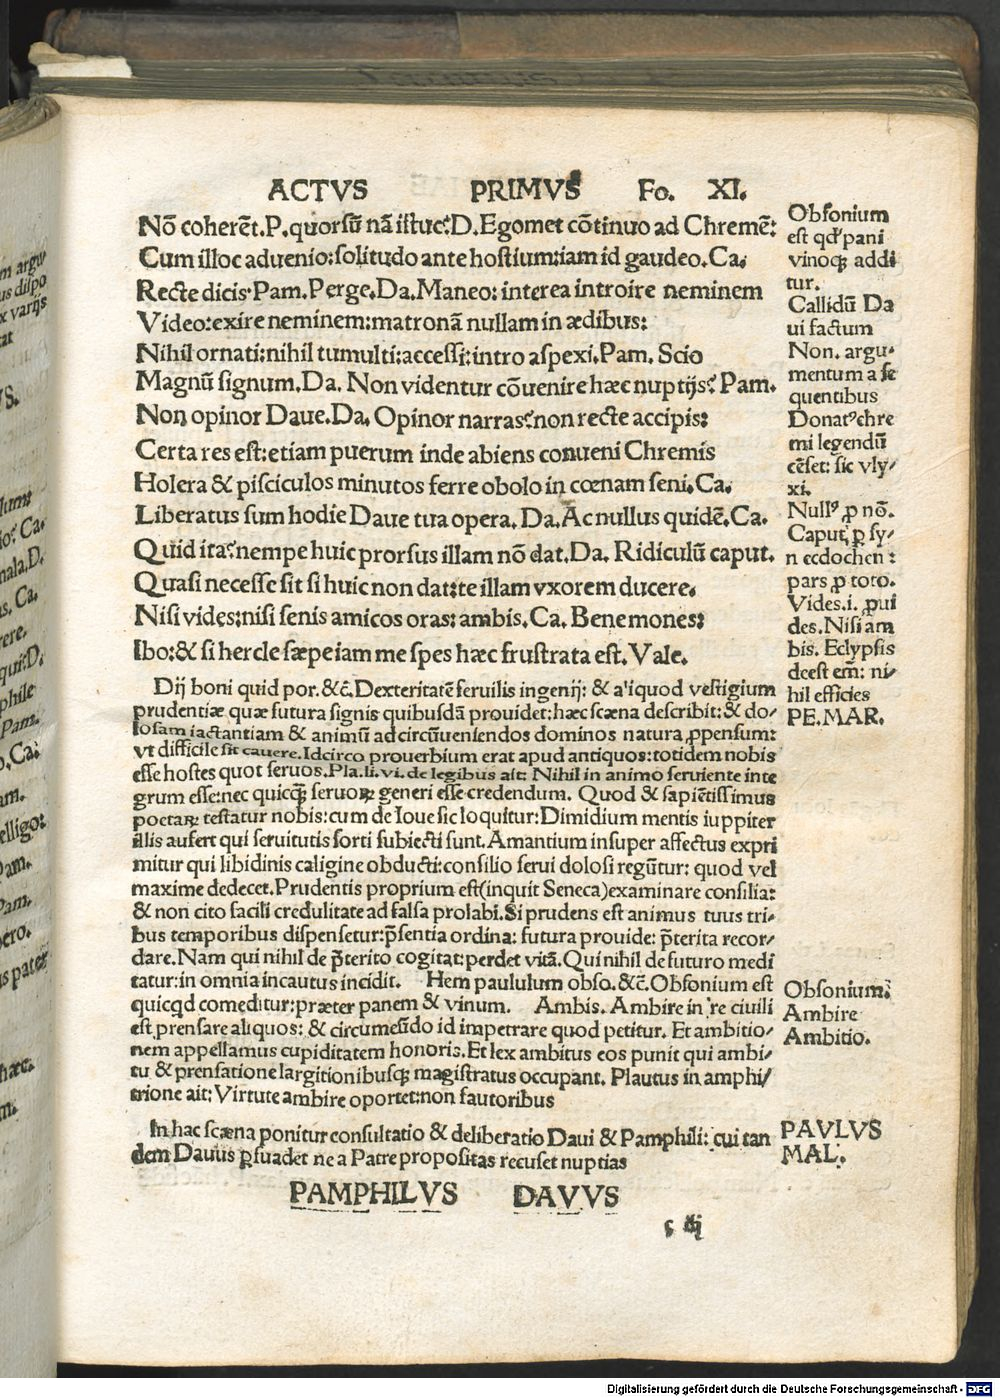 ACTVS PRIMVS Fo. XI.
Nō coherēt.P.quorsū nā istuc?D.Egomet cōtinuo ad Chremē:
Cum illoc aduenio:solitudo ante hostium:iam id gaudeo.Ca.
Recte dicis.Pam.Perge.Da.Maneo:interea introire neminem
Video:exire neminem:matronā nullam in ædibus:
Nihil ornati:nihil tumulti:accessi:intro aspexi.Pam. Scio
Magnū signum.Da. Non videntur cōuenire hæc nuptijs? Pam.
Non opinor Daue.Da.Opinor narras?non recte accipis:
Certa res est:etiam puerum inde abiens conueni Chremis
Holera & pisciculos minutos ferre obolo in cœnam seni.Ca.
Liberatus sum hodie Daue tua opera.Da.Ac nullus quidē.Ca.
Quid ita?nempe huic prorsus illam nō dat.Da. Ridiculū caput.
Quasi necesse sit si huic non dat:te illam vxorem ducere.
Nisi vides:nisi senis amicos oras:ambis.Ca. Bene mones:
Ibo:& si hercle sæpe iam me spes hæc frustrata est.Vale.
Dij boni quid por.&c̄.Dexteritatē seruilis ingenij: & a'iquod vestigium
prudentiæ quæ futura signis quibusdā prouidet:hæc scæna describit:& do/
losam iactantiam & animū ad circūueniendos dominos natura ꝓpensum:
vt difficile sit cauere.Idcirco prouerbium erat apud antiquos:totidem nobis
esse hostes quot seruos.Pla.li.vi.de legibus ait: Nihil in animo seruiente inte
grum esse:nec quicq̄ seruoꝝ generi esse credendum. Quod & sapiētissimus
poetaꝝ testatur nobis:cum de Ioue sic loquitur:Dimidium mentis iuppiter
illis aufert qui seruitutis sorti subiecti sunt.Amantium insuper affectus expri
mitur qui libidinis caligine obducti:consilio serui dolosi regūtur: quod vel
maxime dedecet.Prudentis proprium est(inquit Seneca)examinare consilia:
& non cito facili credulitate ad falsa prolabi.Si prudens est animus tuus tri/
bus temporibus dispensetur:p̄sentia ordina: futura prouide: p̄terita recor/
dare.Nam qui nihil de p̄terito cogitat:perdet vitā.Qui nihil de futuro medi
tatur:in omnia incautus incidit. Hem paululum obso.&c̄.Obsonium est
quicqd comeditur:præter panem & vinum. Ambis.Ambire in re ciuili
est prensare aliquos: & circumeūdo id impetrare quod petitur. Et ambitio/
nem appellamus cupiditatem honoris.Et lex ambitus eos punit qui ambi/
tu & prensatione largitionibusqꝫ magistratus occupant. Plautus in amphi/
trione ait:Virtute ambire oportet:non fautoribus
In hac scæna ponitur consultatio & deliberatio Daui & Pamphili: cui tan
dem Dauus ꝑsuadet ne a Patre propositas recuset nuptias
PAMPHILVS DAVVS
Obsonium
est qd p̄ pani
vinoqꝫ addi
tur.
Callidū Da
ui factum
Non. argu/
mentum a se
quentibus
Donatꝰ chre
mi legendū
cēset: sic vly/
xi.
Nullꝰ ꝓ nō.
Caput ꝑ sy/
n ecdochen:
pars ꝓ toto.
Vides.i. ꝓui
des.Nisi am
bis. Eclypsis
deest em̄: ni/
hil efficies
PE.MAR.
Obsonium.
Ambire
Ambitio.
PAVLVS
MAL.
Digitalisierung gefördert durch die Deutsche Forschungsgemeinschaft - DFG